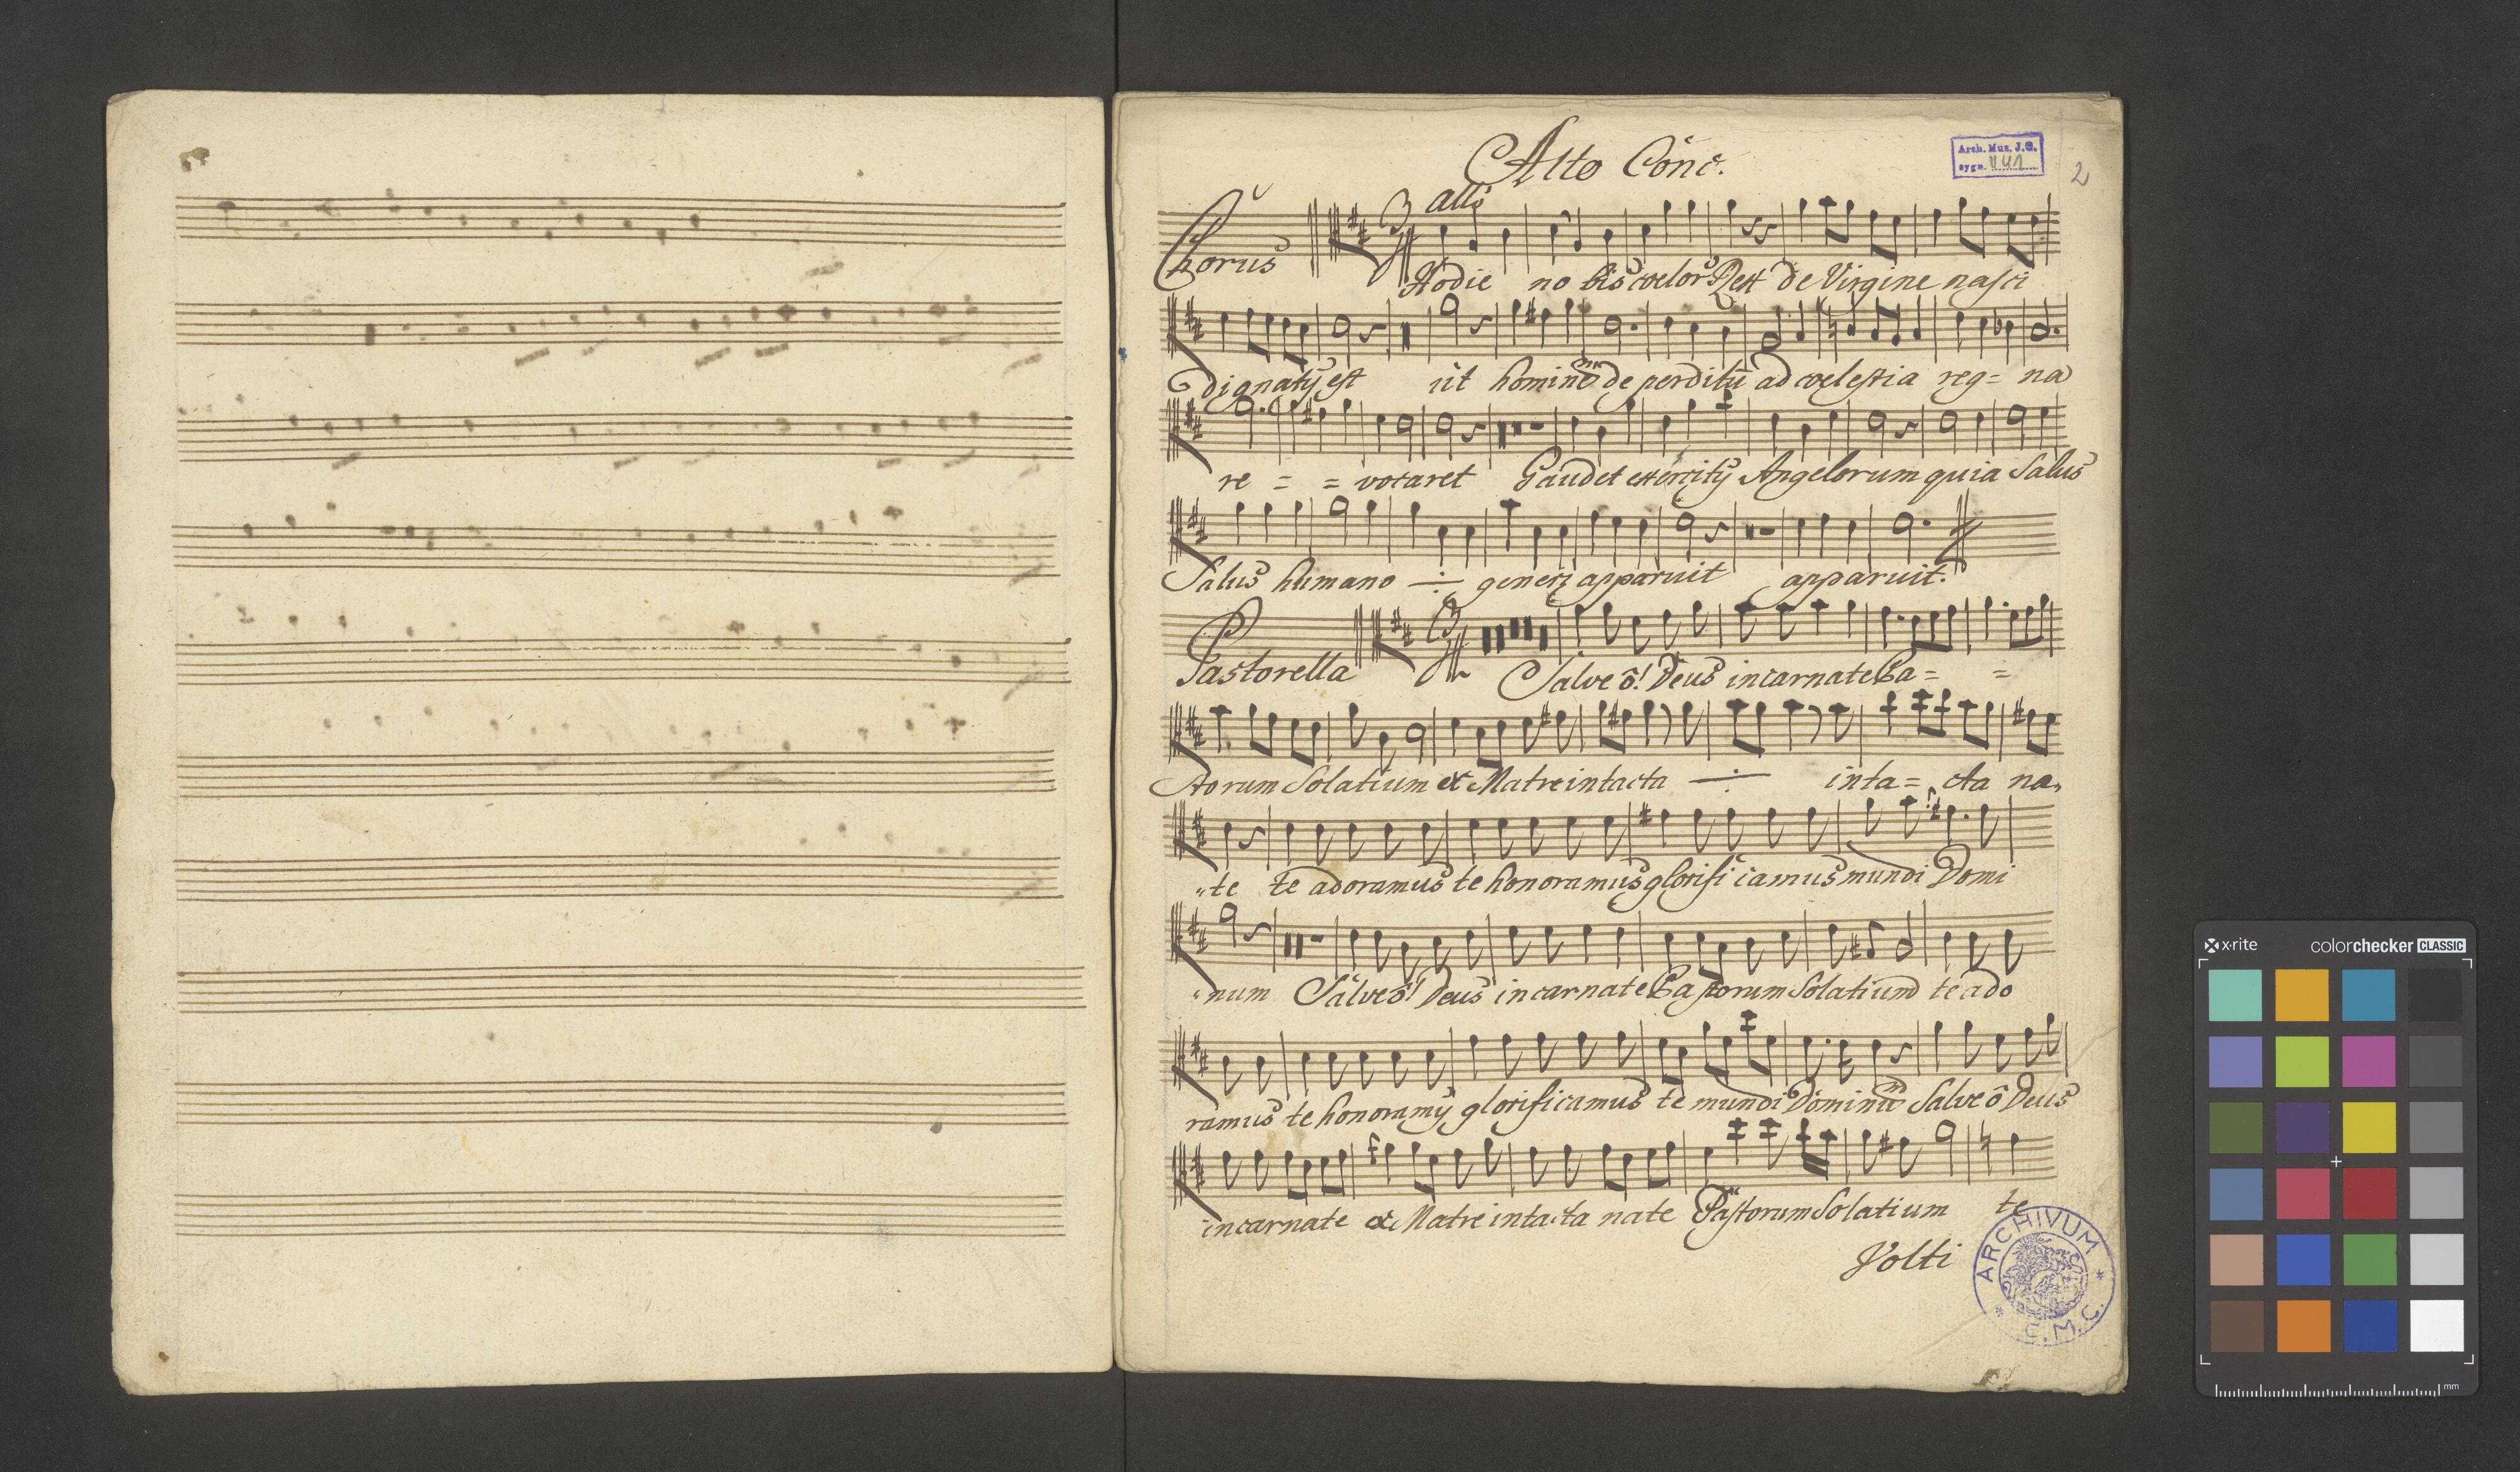 Alto Conc:
Arch. Mus. J.G.
sygn.
2
Chorus
allo
Hodie no bis coelor Rex de Virgine nasci
dignaty est ut hominē de perditū ad coelestia reg= na
re = = vocaret Gaudet exercity Angelorum quia Salus
Salus humano generi apparuit apparuit.
Pastorella
Salve ô! Deus incarnate Pa= =
storum Solatium ex Matre intacta inta= cta na„
„te te adoramus te honoramus glorificamus mundi Domi
„num Salve ô! Deus incarnate Pastorum Solatium te ado
ramus te honoramy glorificamus te mundi Dominū Salve ô Deus
incarnate ex Matre intacta nate Pastorum Solatium te
Volti
ARCHIVUM
x·rite colorchecker CLASSIC
mm